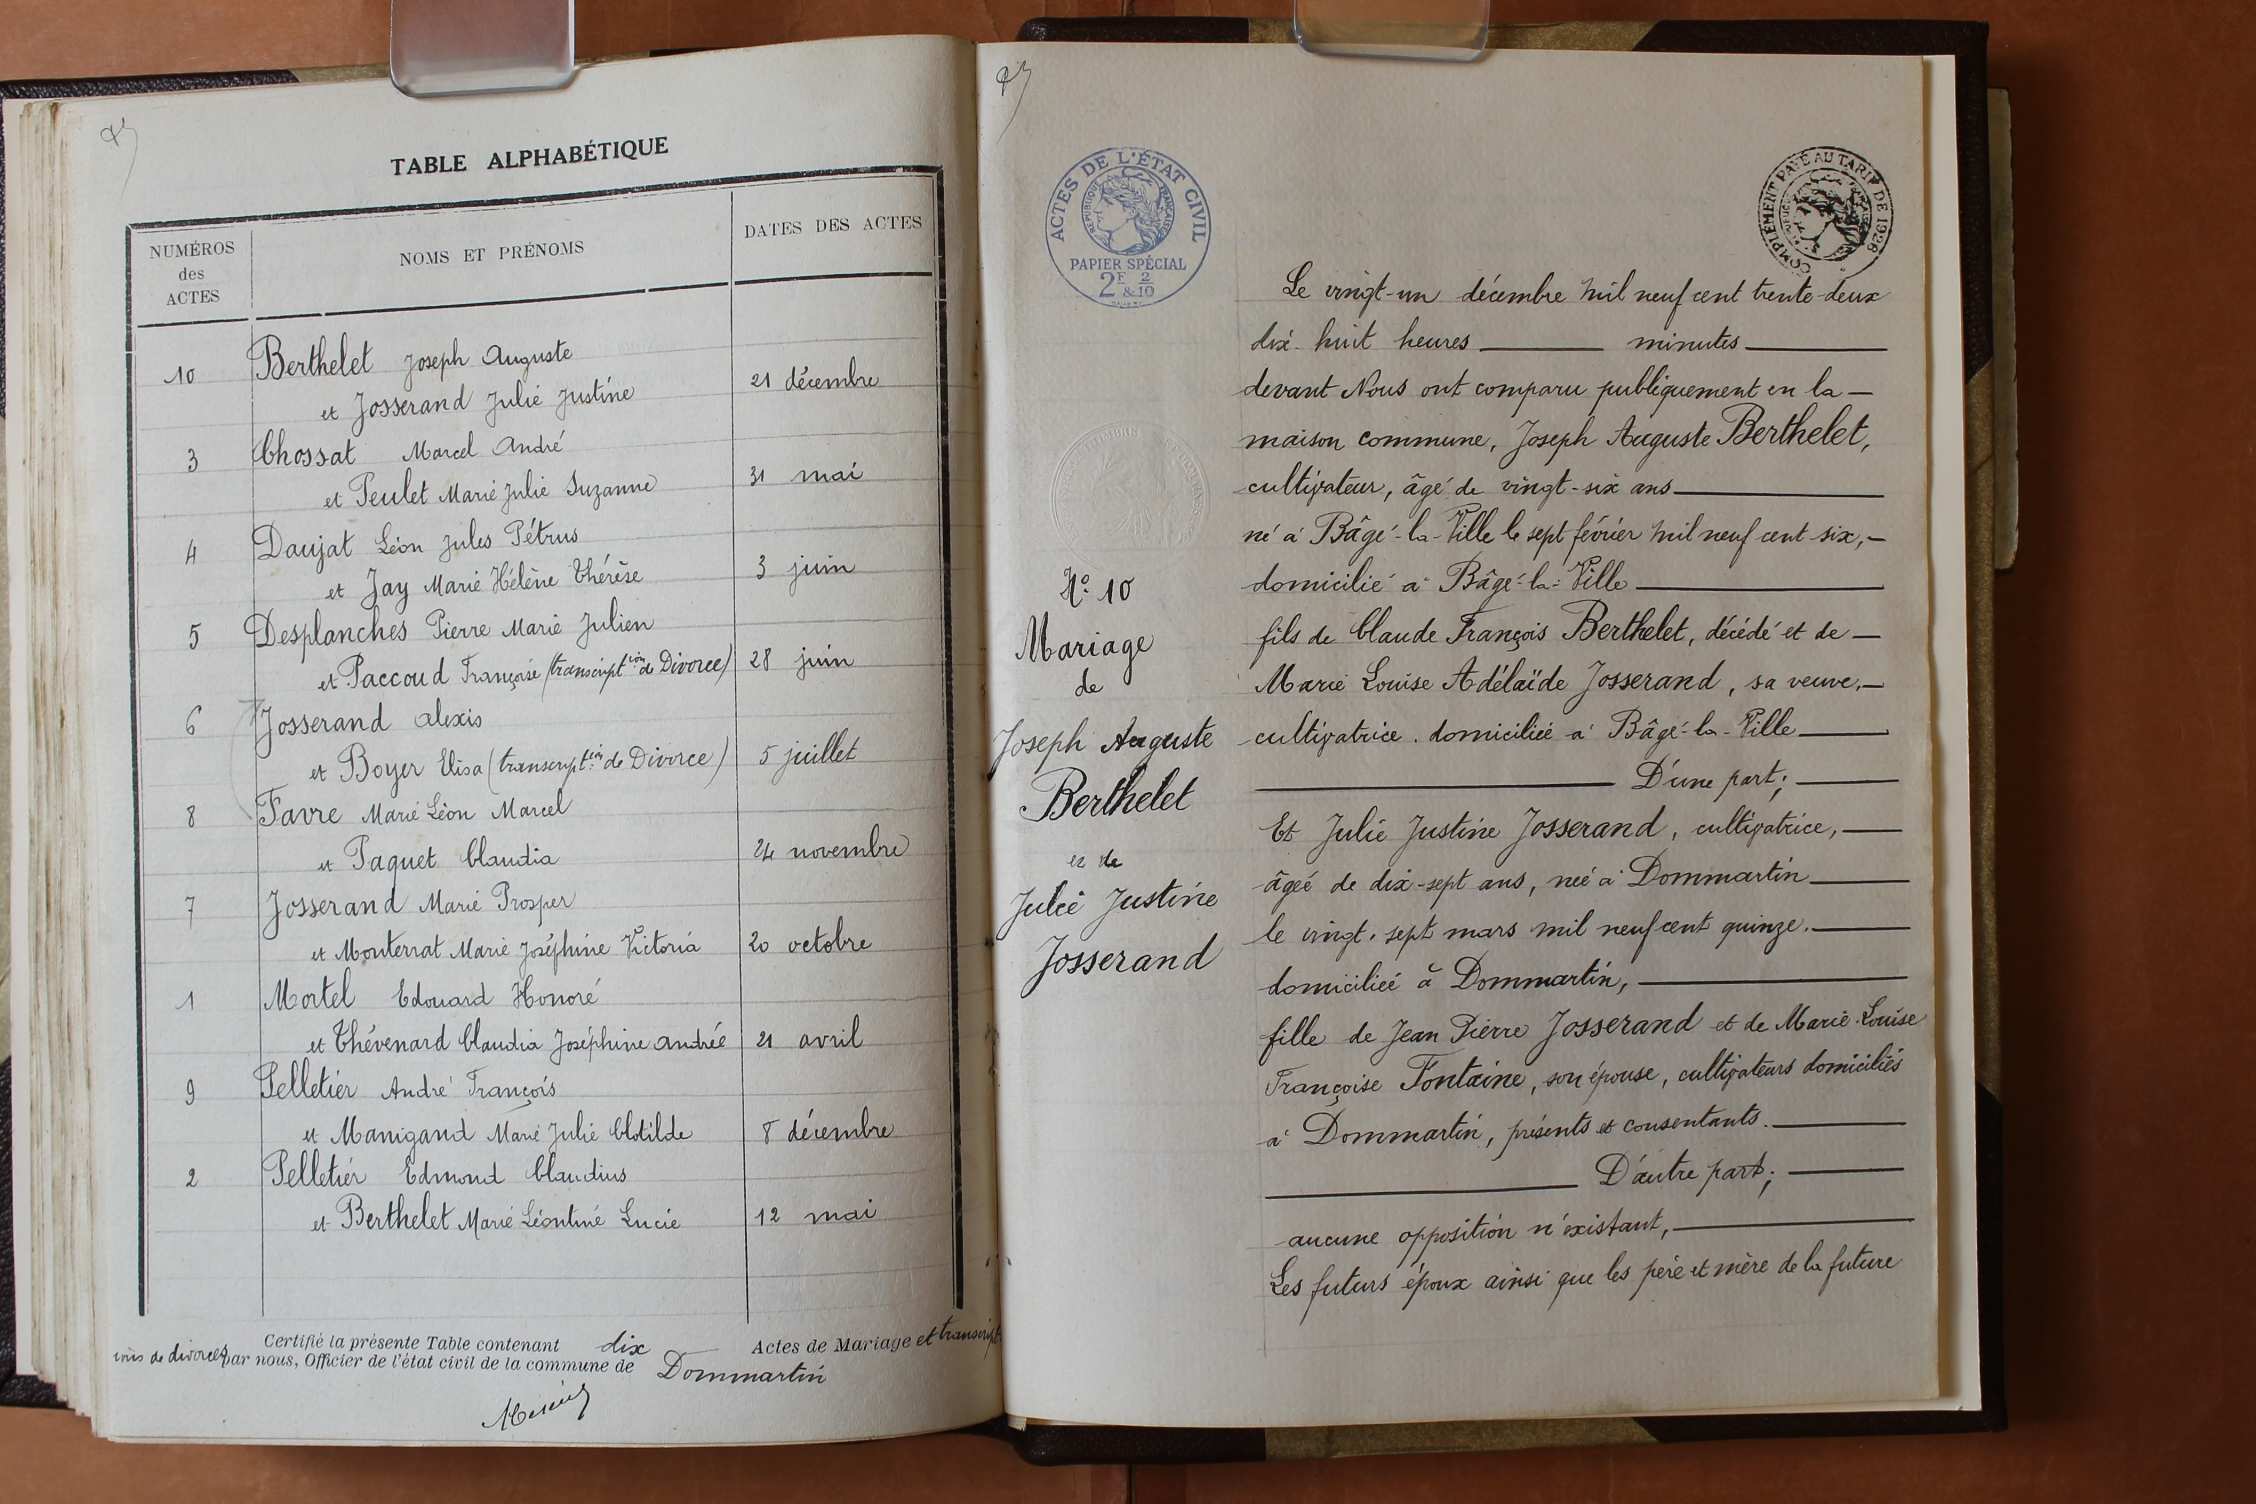 TABLE ALPHABÉTIQUE
NUMÉROS des ACTES
NOMS ET PRÉNOMS
DATES DES ACTES
10 Berthelet Joseph Auguste
et Josserand Julie Justine 21 décembre
3 Chossat Marcel André
et Peulet Marie Julie Suzanne 31 mai
4 Daujat Léon Jules Pétrus
et Jay Marie Hélène Thérèse 3 juin
5 Desplanches Pierre Marie Julien
et Paccoud Françoise (transcript.ion de Divorce) 28 juin
6 Josserand Alexis
et Boyer Elisa (transcript.ion de Divorce) 5 juillet
8 Favre Marie Léon Marcel
et Paquet Claudia 24 novembre
7 Josserand Marie Prosper
et Monterrat Marie Joséphine Victoria 20 octobre
1 Mortel Edouard Honoré
et Thévenard Claudia Joséphine Andrée 21 avril
9 Pelletier André François
et Manigand Marie Julie Clotilde 8 décembre
2 Pelletier Edmond Claudius
et Berthelet Marie Léontine Lucie 12 mai
Certifié la présente Table contenant dix Actes de Mariage et transcript
ions de divorces par nous, Officier de l'état civil de la commune de Dommartin
ACTES DE L'ÉTAT CIVIL
RÉPUBLIQUE FRANÇAISE
PAPIER SPÉCIAL
2F & 2/10
COMPLÉMENT PAYÉ AU TARIF DE 1926
N° 10
Mariage
de
Joseph Auguste
Berthelet
et de
Julie Justine
Josserand
Le vingt-un décembre mil neuf cent trente-deux
dix-huit heures minutes
devant Nous ont comparu publiquement en la
maison commune, Joseph Auguste Berthelet,
cultivateur, âgé de vingt-six ans
né à Bâgé-la-Ville le sept février mil neuf cent six,
domicilié à Bâgé-la-Ville
fils de Claude François Berthelet, décédé et de
Marie Louise Adélaïde Josserand, sa veuve,
cultivatrice. domiciliée à Bâgé-la-Ville
D'une part;
Et Julie Justine Josserand, cultivatrice,
âgée de dix-sept ans, née à Dommartin
le vingt-sept mars mil neuf cent quinze.
domiciliée à Dommartin,
fille de Jean Pierre Josserand et de Marie-Louise
Françoise Fontaine, son épouse, cultivateurs domiciliés
à Dommartin, présents et consentants.
D'autre part;
aucune opposition n'existant,
Les futurs époux ainsi que les père et mère de la future